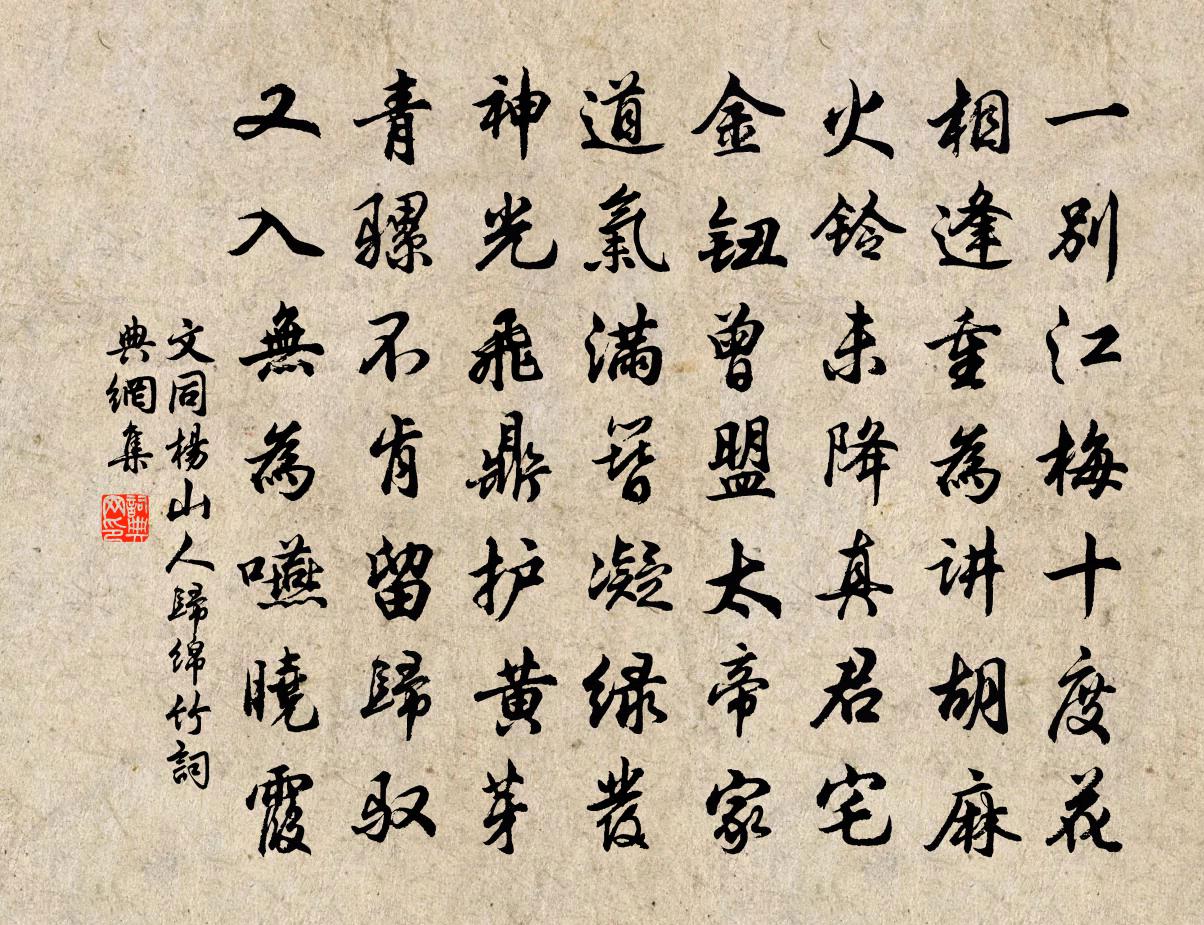 一别江梅十度花
相逢重為讲胡麻
火铃未降真君宅
金钮曾盟太帝家
道氣满簪凝绿發
神光飛鼎护黄芽
青骡不肯留歸驭
又入無為嚥曉霞
文同楊山人歸绵竹詞
典網集
詞典網印